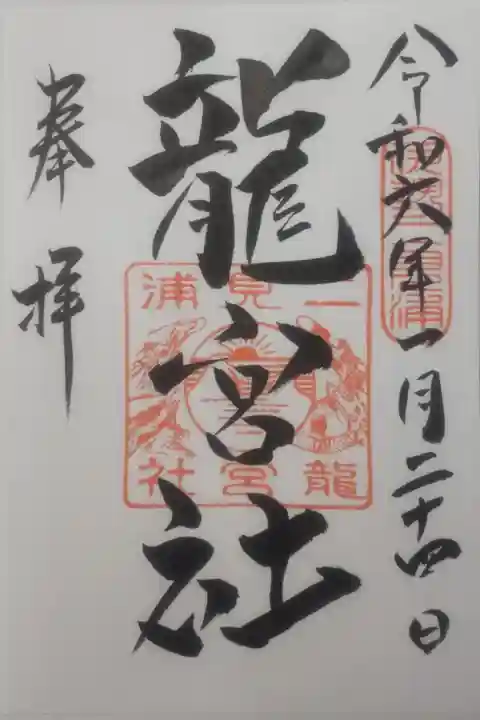 令和六年一月二十四日
伊勢二見浦
龍宮社
二見浦
龍宮社
奉拝